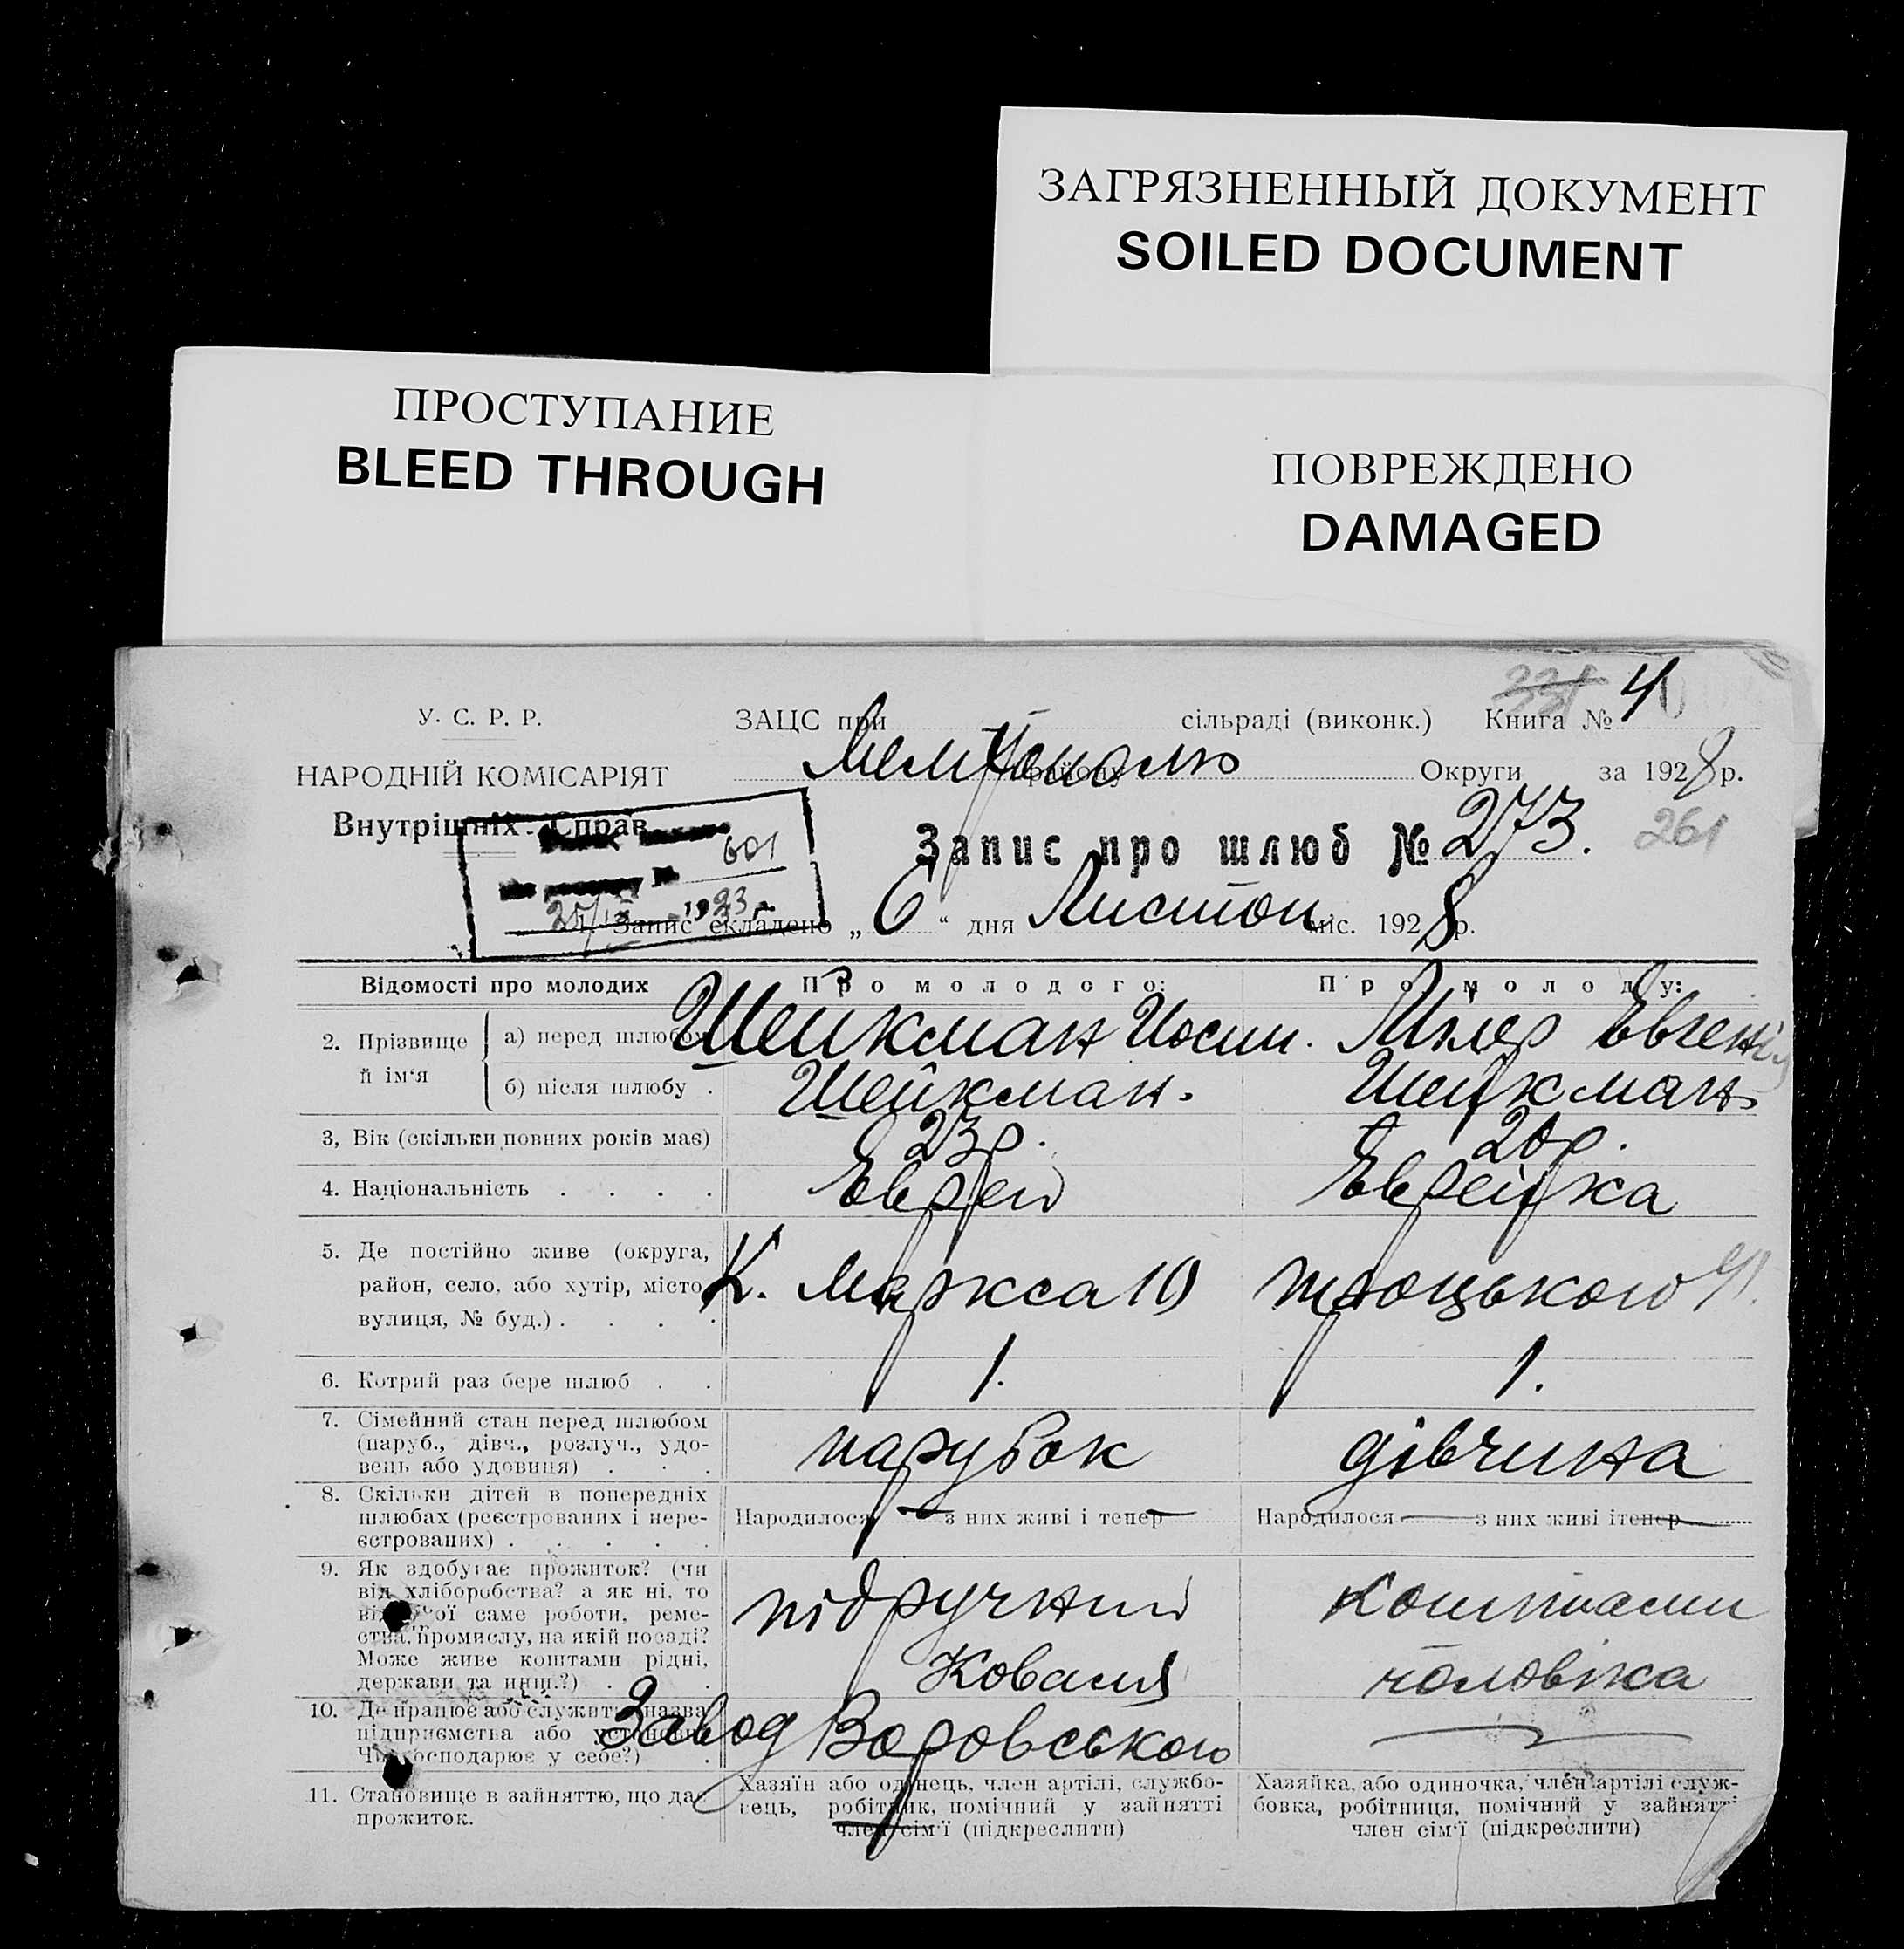 ЗАГРЯЗНЕННЫЙ ДОКУМЕНТ
SOILED DOCUMENT
ПРОСТУПАНИЕ
BLEED THROUGH
ПОВРЕЖДЕНО
DAMAGED
331 4
У. С. Р. Р.
ЗАЦС при сільраді (виконк.) Книга №
НАРОДНІЙ КОМІСАРІЯТ
Мелітополю району Округи за 1928 р.
Внутрішніх Справ
601
1933 р.
Запис про шлюб № 273.
261
1. Запис складено „6“ дня Листоп. міс. 1928 р.
Відомості про молодих
Про молодого:
Про молоду:
2. Прізвище й ім‘я
а) перед шлюбом
Шейкман Иосип.
Мілер Євгенія
б) після шлюбу .
Шейкман.
Шейкман
3, Вік (скільки повних років має)
23 р.
20 р.
4. Національність . . . .
Єврей
Єврейка
5. Де постійно живе (округа,
район, село, або хутір, місто,
вулиця, № буд.) . . . .
К. Маркса 19
Троцького 41.
6. Котрий раз бере шлюб . .
1.
1.
7. Сімейний стан перед шлюбом
(паруб., дівч., розлуч., удо-
вець або удовиця) . . .
парубок
дівчина
8. Скільки дітей в попередніх
шлюбах (реєстрованих і нере-
єстрованих) . . . . .
Народилося — з них живі і тепер —
Народилося — з них живі і тепер —
9. Як здобуває прожиток? (чи
від хліборобства? а як ні, то
від якої саме роботи, реме-
ства, промислу, на якій посаді?
Може живе коштами рідні,
держави та инш.?) . .
підручний
Коваля
коштами
чоловіка
10. Де працює або служить назва
підприємства або установи
Чи господарює у себе?) .
Завод Воровського
—
11. Становище в зайняттю, що дає
прожиток.
Хазяїн або одинець, член артілі, службо-
вець, робітник, помічний у зайнятті
член сім‘ї (підкреслити)
Хазяйка, або одиночка, член артілі служ-
бовка, робітниця, помічний у зайнятті
член сім‘ї (підкреслити)